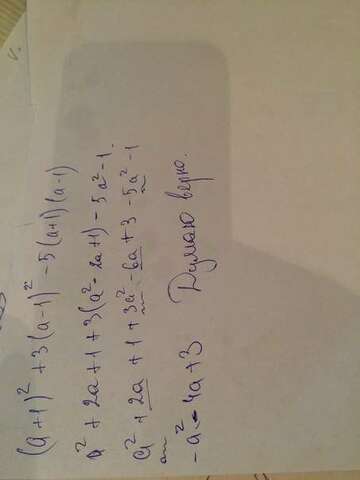 (a+1)² + 3(a-1)² - 5(a+1)(a-1)
a² + 2a + 1 + 3(a² - 2a + 1) - 5a² - 1.
a² + 2a + 1 + 3a² - 6a + 3 - 5a² - 1
-a² - 4a + 3 Думаю верно.